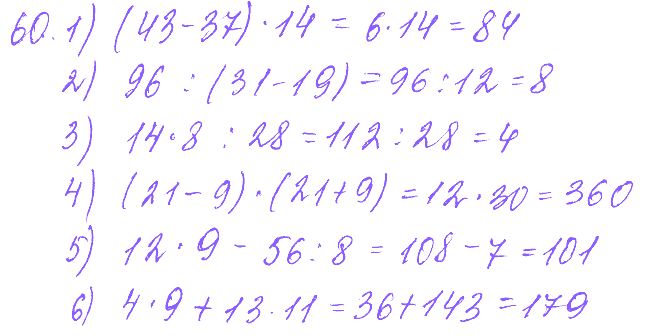 60. 1) (43-37)·14 = 6·14 = 84
2) 96 : (31-19) = 96:12 = 8
3) 14·8 : 28 = 112 : 28 = 4
4) (21-9)·(21+9) = 12·30 = 360
5) 12·9 - 56:8 = 108-7 = 101
6) 4·9 + 13·11 = 36+143 = 179